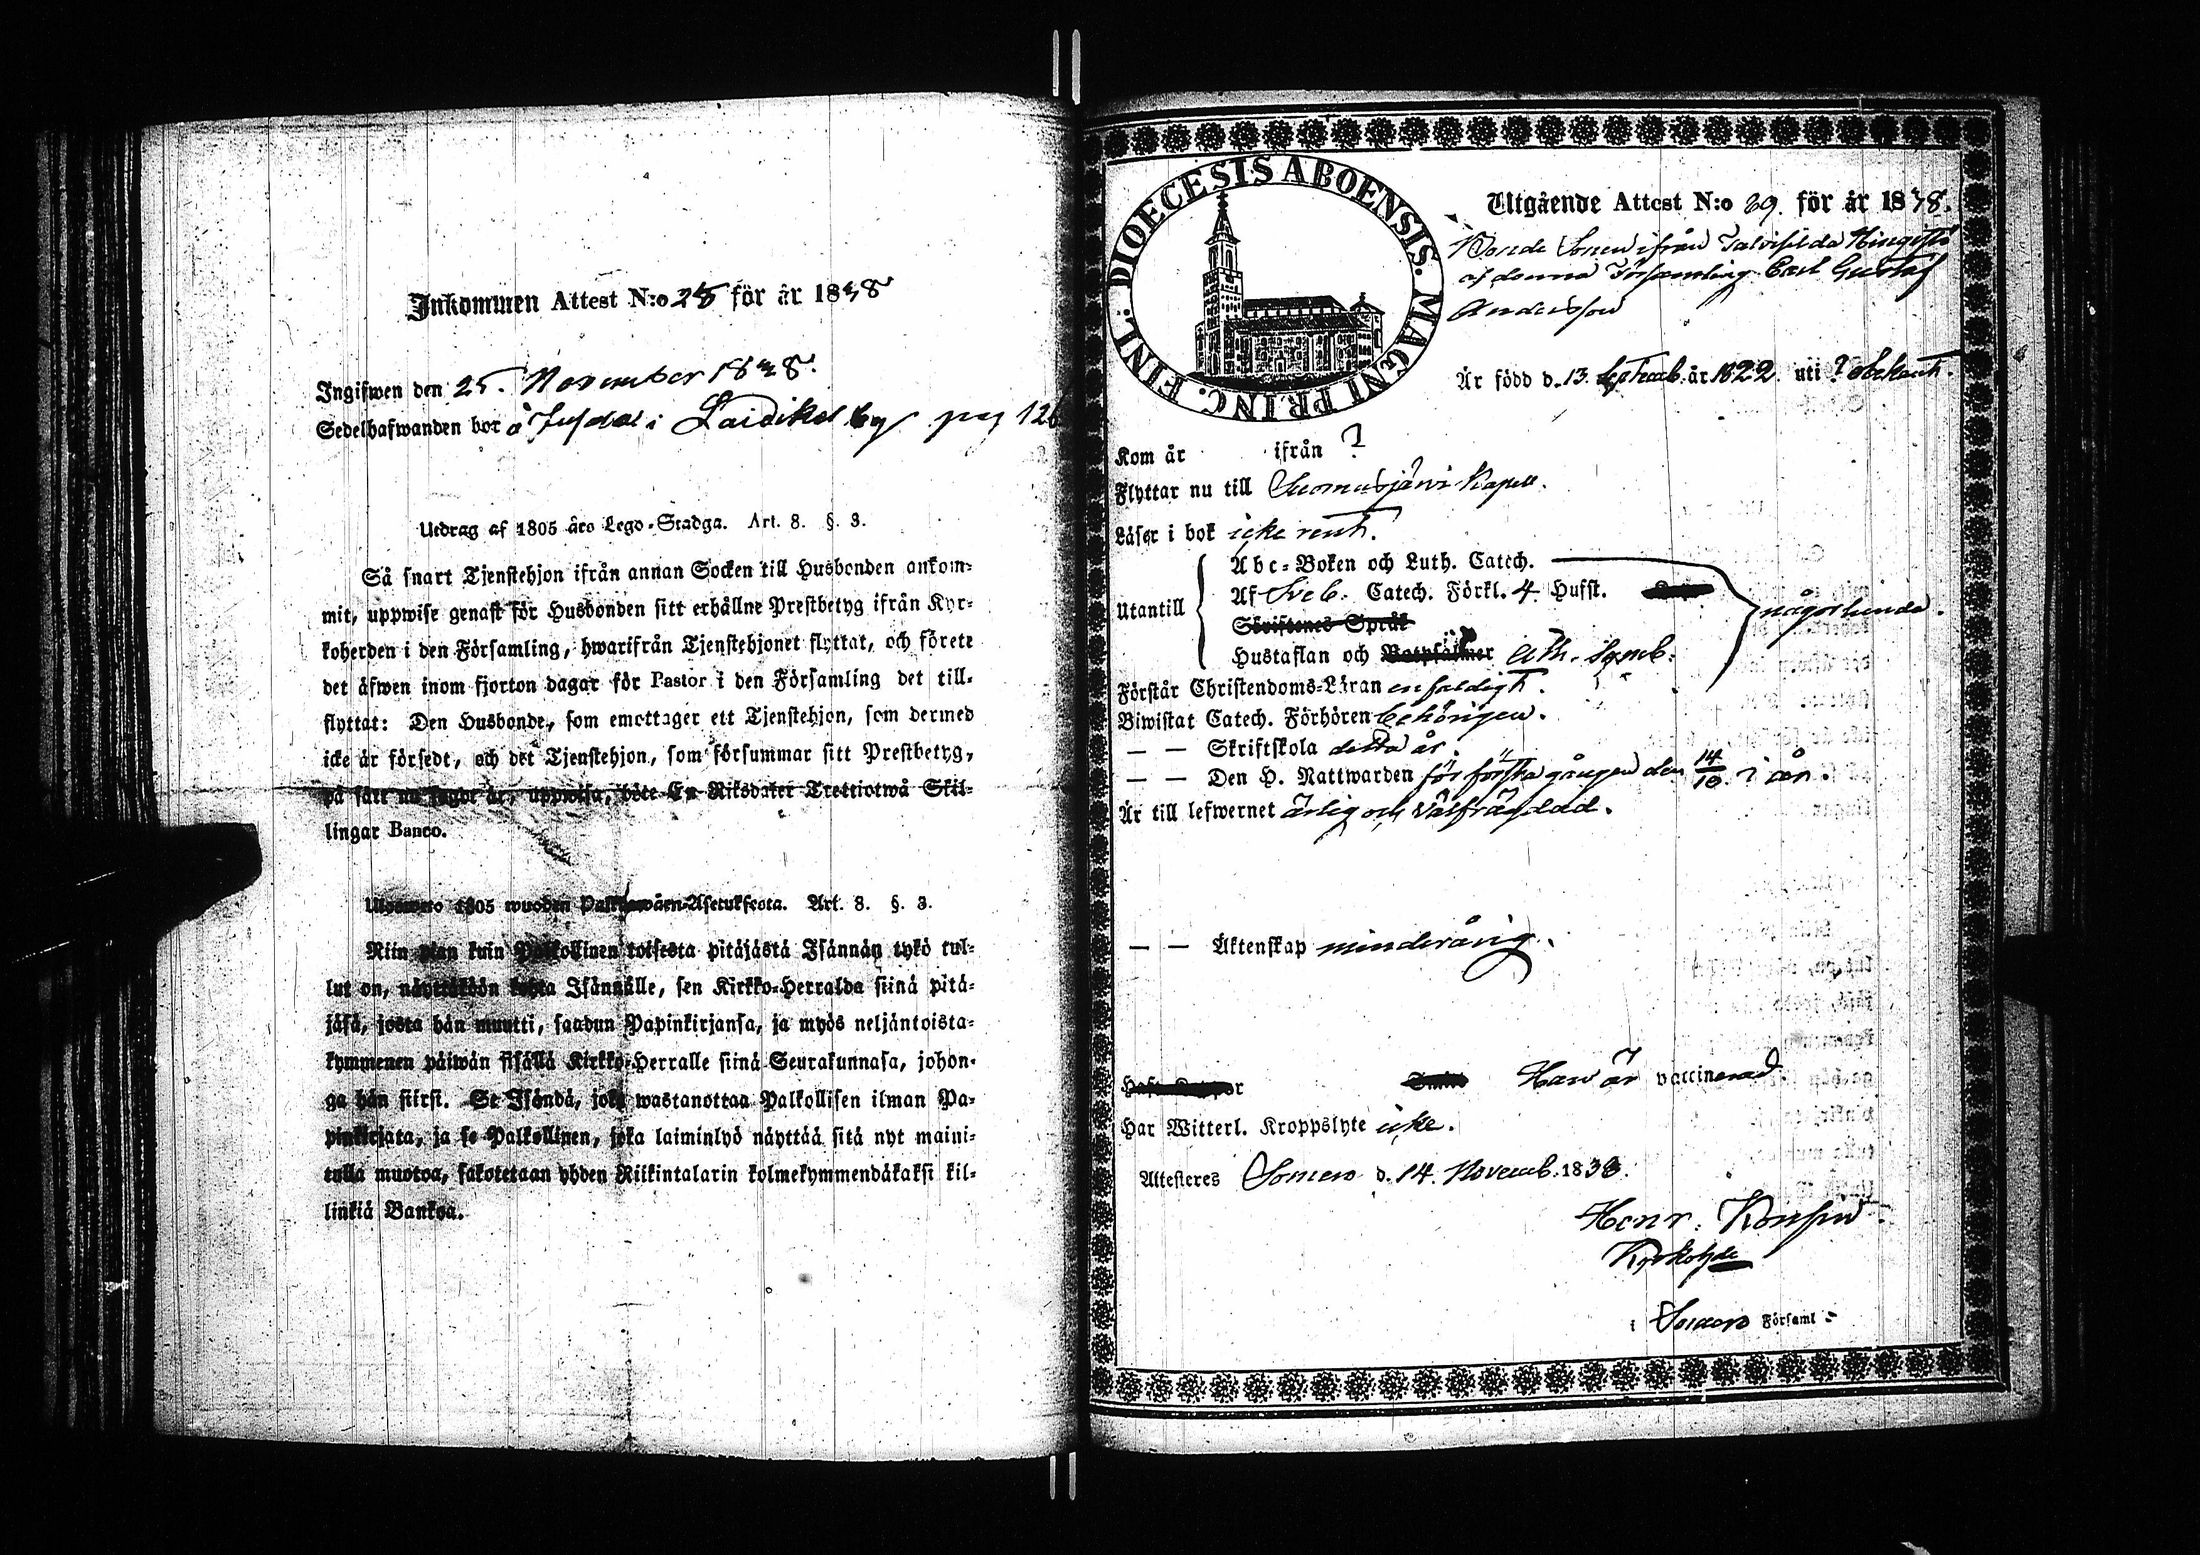 Inkommen Attest N:o 25 för år 1838
Ingifwen den 25. November 1838.
Sedelhafwanden bor å Jusdal i Laidikel by pag 126
Utdrag af 1805 års Lego-Stadga. Art. 8. §. 3.
Så snart Tjenstehjon ifrån annan Socken till Husbonden ankom-
mit, uppwise genast för Husbonden sitt erhållne Prestbetyg ifrån Kyr-
koherden i den Församling, hwarifrån Tjenstehjonet flyttat, och förete
det äfwen inom fjorton dagar för Pastor i den Församling det till-
flyttat: Den Husbonde, som emottager ett Tjenstehjon, som dermed
icke är försedt, och det Tjenstehjon, som försummar sitt Prestbetyg,
på sätt nu sagdt är, uppwisa, böte En Riksdaler Trettiotwå Skil-
lingar Banco.
Ulosweto 1805 wuoden Palkkawäen-Asetuksesta. Art. 8. §. 3.
Niin pian kuin Palkollinen toisesta pitäjästä Isännän tykö tul-
lut on, näyttäköön kohta Isännälle, sen Kirkko-Herralda siinä pitä-
jäsä, josta hän muutti, saadun Papinkirjansa, ja myös neljäntoista-
kymmenen päiwän sisällä Kirkko-Herralle siinä Seurakunnasa, johon-
ga hän siirsi. Se Isändä, joka wastanottaa Palkollisen ilman Pa-
pinkirjata, ja se Palkollinen, joka laiminlyö näyttää sitä nyt maini-
tulla muotoa, sakotetaan yhden Riikintalarin kolmekymmendäkaksi kil-
linkiä Bankoa.
DIOECESIS ABOENSIS. MAGNI PRINC. FINL.
Utgående Attest N:o 29. för år 1838.
Bonde Sonen ifrån Talvisilda Hingistö
af denna Församling Carl Gustaf
Andersson
Är född d. 13. Septemb. år 1822. uti ? obekant.
Kom år ifrån ?
Flyttar nu till Suomusjärwi Kapell.
Läser i bok icke rent.
Utantill
Abc-Boken och Luth. Catech.
Af Sveb. Catech. Förkl. 4 Hufst.
någorlunda.
Skriftenes Språk
Hustaflan och Botpsalmer Ath. Symb.
Förstår Christendoms-Läran enfaldigt.
Biwistat Catech. Förhören behörigen.
— — Skriftskola detta år.
— — Den H. Nattwarden för första gången den 14/10 i år.
Är till lefwernet ärlig och välfrägdad.
— — Äktenskap minderårig.
Haft Koppor Han är vaccinerad
Har Witterl. Kroppslyte icke.
Attesteres Somero d. 14. Novemb. 1838.
Henr. Konsin
Kyrkohde
i Somero Församl: